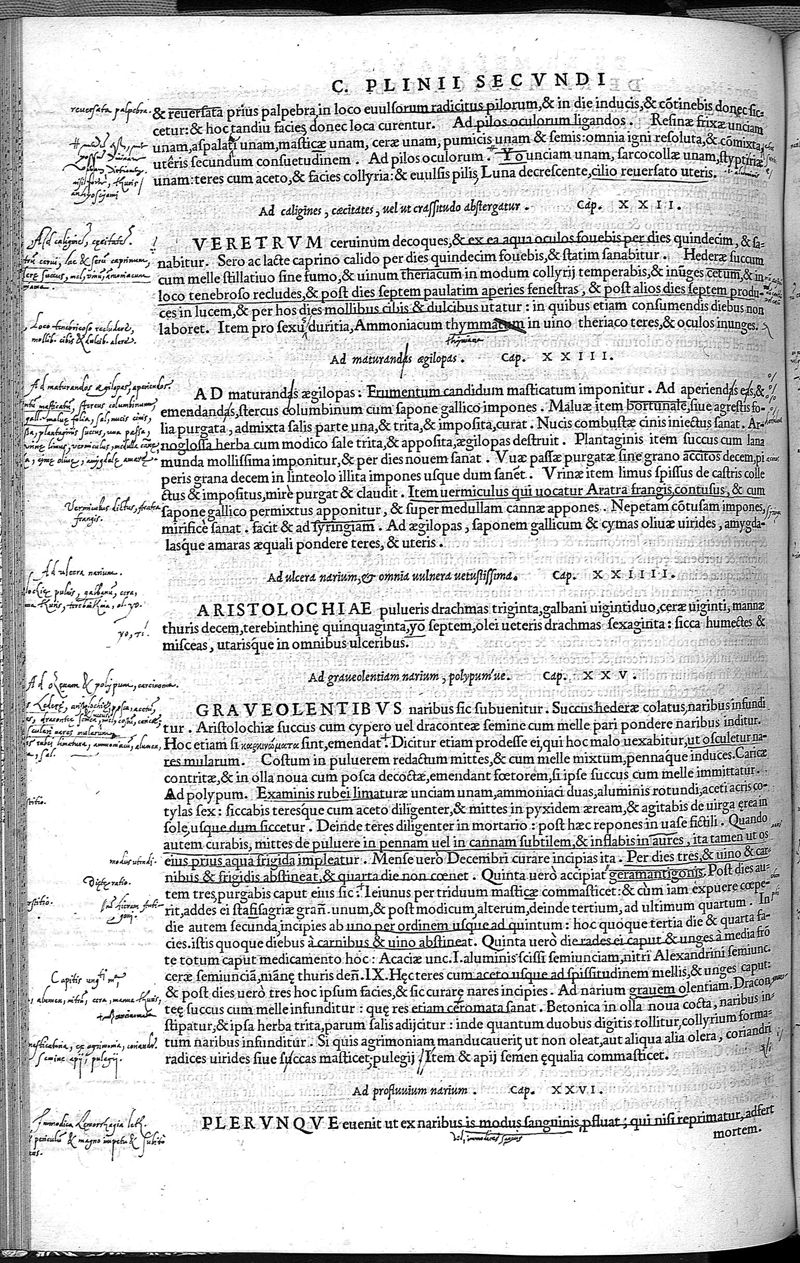 C. PLINII SECVNDI
& reuersata prius palpebra, in loco euulsorum radicitus pilorum, & in die inducis, & cõtinebis donec sic-
cetur: & hoc tandiu facies, donec loca curentur. Ad pilos oculorum ligandos. Resinæ frixæ unciam
unam, aspalati unam, masticæ unam, ceræ unam, pumicis unam & semis: omnia igni resoluta, & cõmixta,
utêris secundum consuetudinem. Ad pilos oculorum. Yo unciam unam, sarcocollæ unam, stypteriæ
unam: teres cum aceto, & facies collyria: & euulsis pilis, Luna decrescente, cilio reuersato uteris.
Ad caligines, cæcitates, uel ut crassitudo abstergatur. Cap. XXII.
VERETRVM ceruinum decoques, & ex ea aqua oculos fouebis per dies quindecim, & sa-
nabitur. Sero ac lacte caprino calido per dies quindecim fouebis, & statim sanabitur. Hederæ succum
cum melle stillatiuo sine fumo, & uinum theriacum in modum collyrij temperabis, & inũges cętum, & in
loco tenebroso recludes, & post dies septem paulatim aperies fenestras, & post alios dies septem produ-
ces in lucem, & per hos dies mollibus cibis & dulcibus utatur: in quibus etiam consumendis diebus non
laboret. Item pro sexu duritia, Ammoniacum thymmatum in uino theriaco teres, & oculos inunges.
Ad maturandas ægilopas. Cap. XXIII.
AD maturandas ægilopas: Erumentum candidum masticatum imponitur. Ad aperiendas eas, &
emendandas, stercus columbinum cum sapone gallico impones. Maluæ item hortunale, siue agrestis fo-
lia purgata, admixta salis parte una, & trita, & imposita, curat. Nucis combustæ cinis iniectus sanat. Ar-
noglossa herba cum modico sale trita, & apposita, ægilopas destruit. Plantaginis item succus cum lana
munda mollissima imponitur, & per dies nouem sanat. Vuæ passæ purgatæ sine grano accitos decem, pi
peris grana decem in linteolo illita impones usque dum sanet. Vrinæ item limus spissus de castris colle
ctus & impositus, mirè purgat & claudit. Item uermiculus qui uocatur Aratra frangis, contusus, & cum
sapone gallico permixtus apponitur, & super medullam cannæ appones. Nepetam cõtusam impones,
mirificè sanat. facit & ad syringiam. Ad ægilopas, saponem gallicum & cymas oliuæ uirides, amygda-
lasque amaras æquali pondere teres, & uteris.
Ad ulcera narium, & omnia uulnera uetustissima. Cap. XXIIII.
ARISTOLOCHIAE pulueris drachmas triginta, galbani uigintiduo, ceræ uiginti, mannæ
thuris decem, terebinthinę quinquaginta, yo septem, olei ueteris drachmas sexaginta: sicca humectes &
misceas, utarisque in omnibus ulceribus.
Ad graueolentiam narium, polypumúe. Cap. XXV.
GRAVEOLENTIBVS naribus sic subuenitur. Succus hederæ colatus, naribus infundi
tur. Aristolochiæ succus cum cypero uel draconteæ semine cum melle pari pondere naribus inditur.
Hoc etiam si καρκινώματα sint, emendat. Dicitur etiam prodesse ei, qui hoc malo uexabitur, ut osculetur na-
res mularum. Costum in puluerem redactum mittes, & cum melle mixtum, pennaque induces. Caricæ
contritæ, & in olla noua cum posca decoctæ, emendant fœtorem, si ipse succus cum melle immittatur.
Ad polypum. Examinis rubei limaturæ unciam unam, ammoniaci duas, aluminis rotundi, aceti acris co-
tylas sex: siccabis teresque cum aceto diligenter, & mittes in pyxidem æream, & agitabis de uirga ęrea in
sole, usque dum siccetur. Deinde teres diligenter in mortario: post hæc repones in uase fictili. Quando
autem curabis, mittes de puluere in pennam uel in cannam subtilem, & inflabis in aures, ita tamen ut os
eius prius aqua frigida impleatur. Mense uerò Decembri curare incipias ita. Per dies tres, & uino & car-
nibus & frigidis abstineat, & quarta die non cœnet. Quinta uerò accipiat geramantigonis. Post dies au-
tem tres, purgabis caput eius sic: Ieiunus per triduum masticæ commasticet: & cum iam expuere cœpe-
rit, addes ei stafisagriæ grañ. unum, & post modicum, alterum, deinde tertium, ad ultimum quartum. In
die autem secunda, incipies ab uno per ordinem usque ad quintum: hoc quoque tertia die & quarta fa-
cies. istis quoque diebus à carnibus & uino abstineat. Quinta uerò die rades ei caput & unges à media frõ
te totum caput medicamento hoc: Acaciæ unc. I. aluminis scissi semiunciam, nitri Alexandrini semiunc.
ceræ semiunciã, mãnę thuris deñ. IX. Hęc teres cum aceto usque ad spissitudinem mellis, & unges caput:
& post dies uerò tres hoc ipsum facies, & sic curare nares incipies. Ad narium grauem olentiam. Dracon
teę succus cum melle infunditur: quę res etiam ceromata sanat. Betonica in olla noua cocta, naribus in-
stipatur, & ipsa herba trita, parum salis adijcitur: inde quantum duobus digitis tollitur, collyrium forma-
tum naribus infunditur. Si quis agrimoniam manducauerit, ut non oleat, aut aliqua alia olera, coriandri
radices uirides siue siccas masticet, pulegij. Item & apij semen ęqualia commasticet.
Ad profluuium narium. Cap. XXVI.
PLERVNQVE euenit ut ex naribus is modus sanguinis pfluat; qui nisi reprimatur, adfert
mortem.
reuersata palpebra.
Ad caligines, cæcitates.
Loco tenebricoso recludere,
mollib. cibis & dulcib. alere.
Ad maturandos ægilopas, aperiendos.
Vermiculus dictus, aratra
frangis.
Ad ulcera narium.
yo, ti.
Ad ozenam & polypum, carcinoma.
modus utendi.
Diæta ratio.